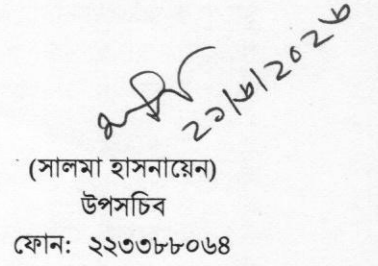 ২১/৬/২০২৬
(সালমা হাসনায়েন)
উপসচিব
ফোন: ২২৩৩৮৮০৬৪